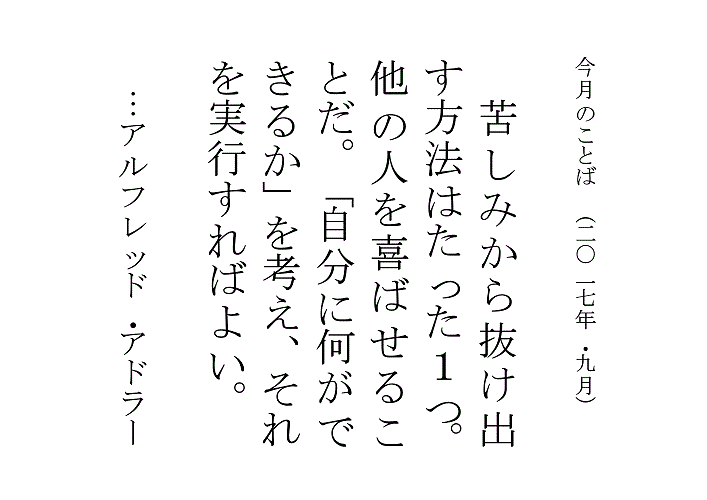 今月のことば　（二〇一七年・九月）
苦しみから抜け出
す方法はたった１つ。
他の人を喜ばせるこ
とだ。「自分に何がで
きるか」を考え、それ
を実行すればよい。
…アルフレッド・アドラー